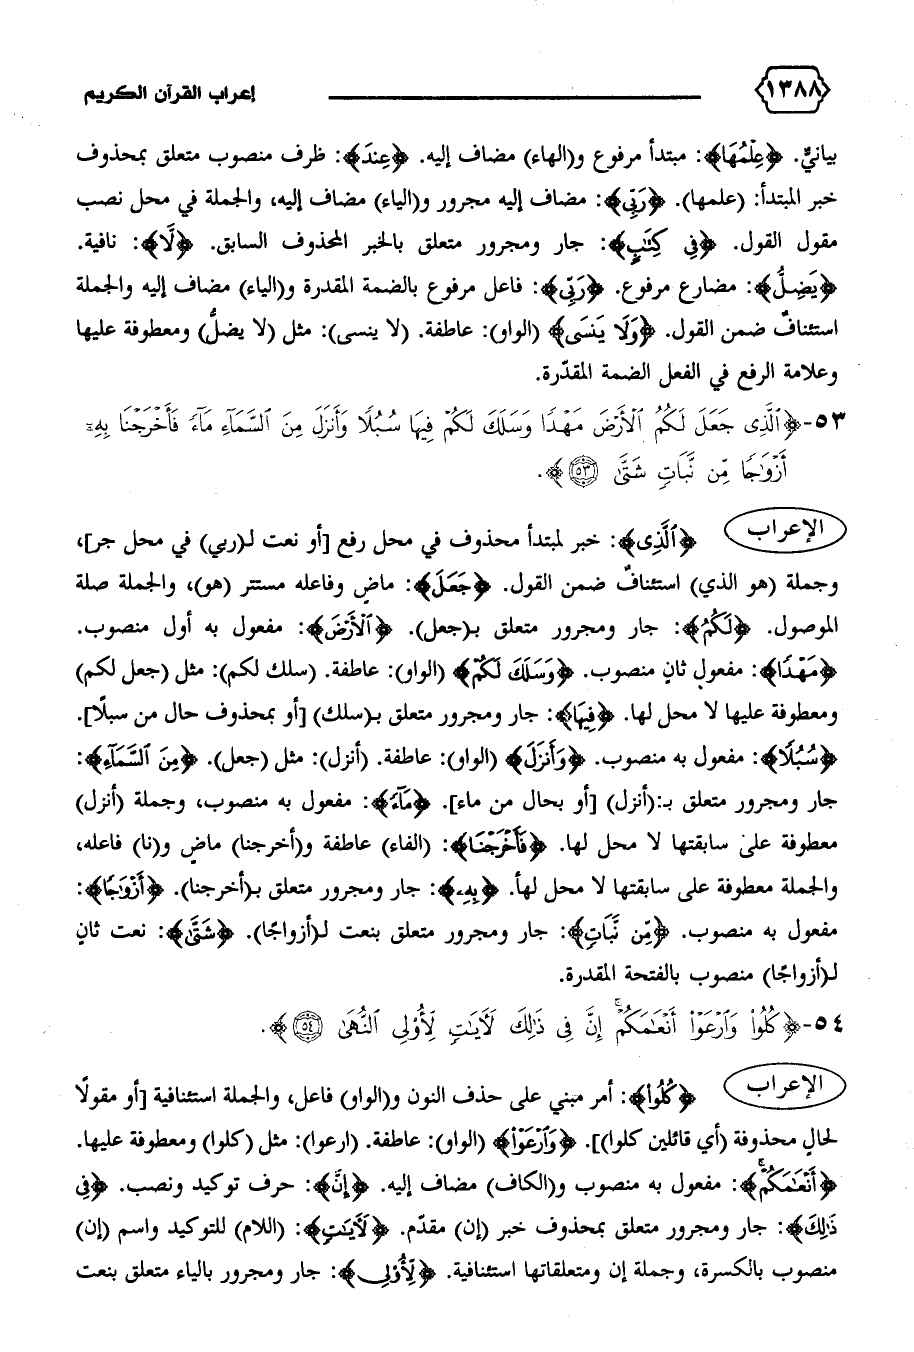 ١٣٨٨ إعراب القرآن الكريم
بيانيٌّ. ﴿عِلْمُهَا﴾: مبتدأ مرفوع و(الهاء) مضاف إليه. ﴿عِندَ﴾: ظرف منصوب متعلق بمحذوف
خبر المبتدأ: (علمها). ﴿رَبِّي﴾: مضاف إليه مجرور و(الياء) مضاف إليه، والجملة في محل نصب
مقول القول. ﴿فِي كِتَٰبٍ﴾: جار ومجرور متعلق بالخبر المحذوف السابق. ﴿لَّا﴾: نافية.
﴿يَضِلُّ﴾: مضارع مرفوع. ﴿رَبِّي﴾: فاعل مرفوع بالضمة المقدرة و(الياء) مضاف إليه والجملة
استئنافٌ ضمن القول. ﴿وَلَا يَنسَى﴾ (الواو): عاطفة. (لا ينسى): مثل (لا يضلُّ) ومعطوفة عليها
وعلامة الرفع في الفعل الضمة المقدّرة.
٥٣-﴿ٱلَّذِى جَعَلَ لَكُمُ ٱلْأَرْضَ مَهْدًا وَسَلَكَ لَكُمْ فِيهَا سُبُلًا وَأَنزَلَ مِنَ ٱلسَّمَآءِ مَآءً فَأَخْرَجْنَا بِهِۦٓ
أَزْوَٰجًا مِّن نَّبَاتٍ شَتَّىٰ ٥٣﴾.
الإعراب ﴿ٱلَّذِى﴾: خبر لمبتدأ محذوف في محل رفع [أو نعت لـ(ربي) في محل جر]،
وجملة (هو الذي) استئنافٌ ضمن القول. ﴿جَعَلَ﴾: ماضٍ وفاعله مستتر (هو)، والجملة صلة
الموصول. ﴿لَكُمُ﴾: جار ومجرور متعلق بـ(جعل). ﴿ٱلْأَرْضَ﴾: مفعول به أول منصوب.
﴿مَهْدًا﴾: مفعول ثانٍ منصوب. ﴿وَسَلَكَ لَكُمْ﴾ (الواو): عاطفة. (سلك لكم): مثل (جعل لكم)
ومعطوفة عليها لا محل لها. ﴿فِيهَا﴾: جار ومجرور متعلق بـ(سلك) [أو بمحذوف حال من سبلًا].
﴿سُبُلًا﴾: مفعول به منصوب. ﴿وَأَنزَلَ﴾ (الواو): عاطفة. (أنزل): مثل (جعل). ﴿مِنَ ٱلسَّمَآءِ﴾:
جار ومجرور متعلق بـ:(أنزل) [أو بحال من ماء]. ﴿مَآءً﴾: مفعول به منصوب، وجملة (أنزل)
معطوفة على سابقتها لا محل لها. ﴿فَأَخْرَجْنَا﴾: (الفاء) عاطفة و(أخرجنا) ماضٍ و(نا) فاعله،
والجملة معطوفة على سابقتها لا محل لهأ. ﴿بِهِۦ﴾: جار ومجرور متعلق بـ(أخرجنا). ﴿أَزْوَٰجًا﴾:
مفعول به منصوب. ﴿مِّن نَّبَاتٍ﴾: جار ومجرور متعلق بنعت لـ(أزواجًا). ﴿شَتَّىٰ﴾: نعت ثانٍ
لـ(أزواجًا) منصوب بالفتحة المقدرة.
٥٤-﴿كُلُوا۟ وَٱرْعَوْا۟ أَنْعَٰمَكُمْ ۗ إِنَّ فِى ذَٰلِكَ لَءَايَٰتٍ لِّأُو۟لِى ٱلنُّهَىٰ ٥٤﴾.
الإعراب ﴿كُلُوا۟﴾: أمر مبني على حذف النون و(الواو) فاعل، والجملة استئنافية [أو مقولًا
لحالٍ محذوفة (أي قائلين كلوا)]. ﴿وَٱرْعَوْا۟﴾ (الواو): عاطفة. (ارعوا): مثل (كلوا) ومعطوفة عليها.
﴿أَنْعَٰمَكُمْ ۗ﴾: مفعول به منصوب و(الكاف) مضاف إليه. ﴿إِنَّ﴾: حرف توكيد ونصب. ﴿فِى
ذَٰلِكَ﴾: جار ومجرور متعلق بمحذوف خبر (إن) مقدّم. ﴿لَءَايَٰتٍ﴾: (اللام) للتوكيد واسم (إن)
منصوب بالكسرة، وجملة إن ومتعلقاتها استئنافية. ﴿لِّأُو۟لِى﴾: جار ومجرور بالياء متعلق بنعت